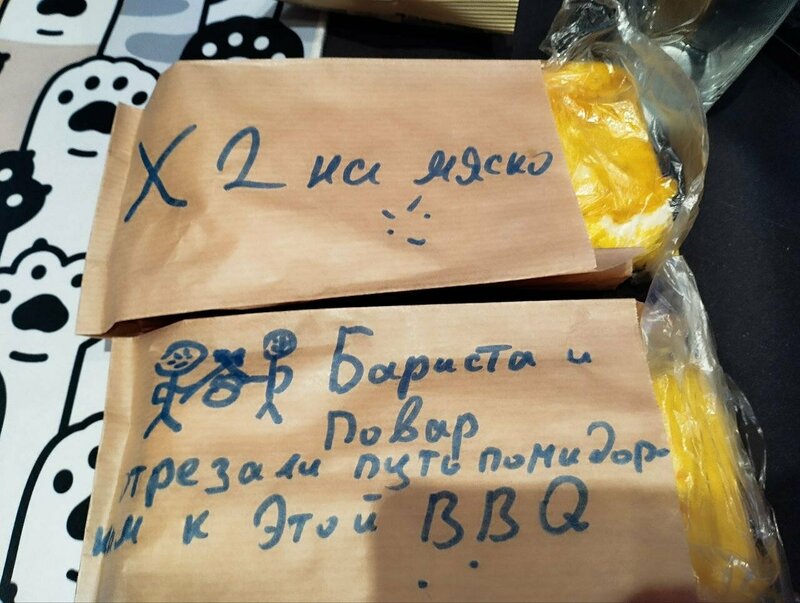 X 2 на мяско
Бариста и
повар
отрезали путь помидор-
кам к этой BBQ